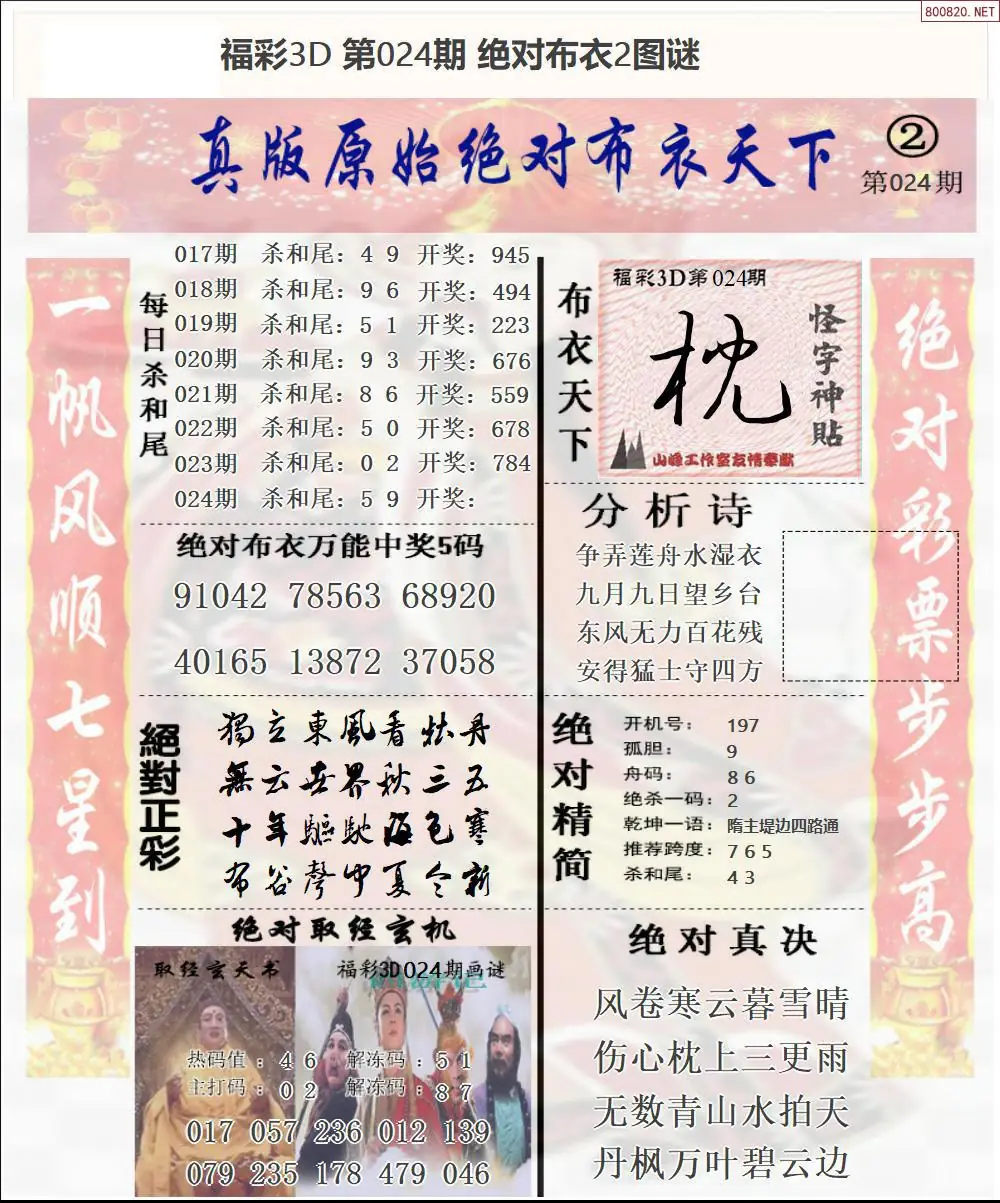 800820.NET
福彩3D 第024期 绝对布衣2图谜
真版原始绝对布衣天下
②
第024期
一帆风顺七星到
每日杀和尾
017期 杀和尾: 4 9 开奖: 945
018期 杀和尾: 9 6 开奖: 494
019期 杀和尾: 5 1 开奖: 223
020期 杀和尾: 9 3 开奖: 676
021期 杀和尾: 8 6 开奖: 559
022期 杀和尾: 5 0 开奖: 678
023期 杀和尾: 0 2 开奖: 784
024期 杀和尾: 5 9 开奖:
绝对布衣万能中奖5码
91042 78563 68920
40165 13872 37058
絕對正彩
獨立東風看牡丹
無云世界秋三五
十年驅馳海色寒
布谷聲中夏令新
绝对取经玄机
取经玄天书
福彩3D024期画谜
热码值：4 6 解冻码：5 1
主打码：0 2 解冻码：8 7
017 057 236 012 139
079 235 178 479 046
布衣天下
福彩3D第024期
枕
怪字神貼
山峰工作室友情奉献
分析诗
争弄莲舟水湿衣
九月九日望乡台
东风无力百花残
安得猛士守四方
绝对精简
开机号: 197
孤胆: 9
舟码: 8 6
绝杀一码: 2
乾坤一语: 隋主堤边四路通
推荐跨度: 7 6 5
杀和尾: 4 3
绝对真决
风卷寒云暮雪晴
伤心枕上三更雨
无数青山水拍天
丹枫万叶碧云边
绝对彩票步步高